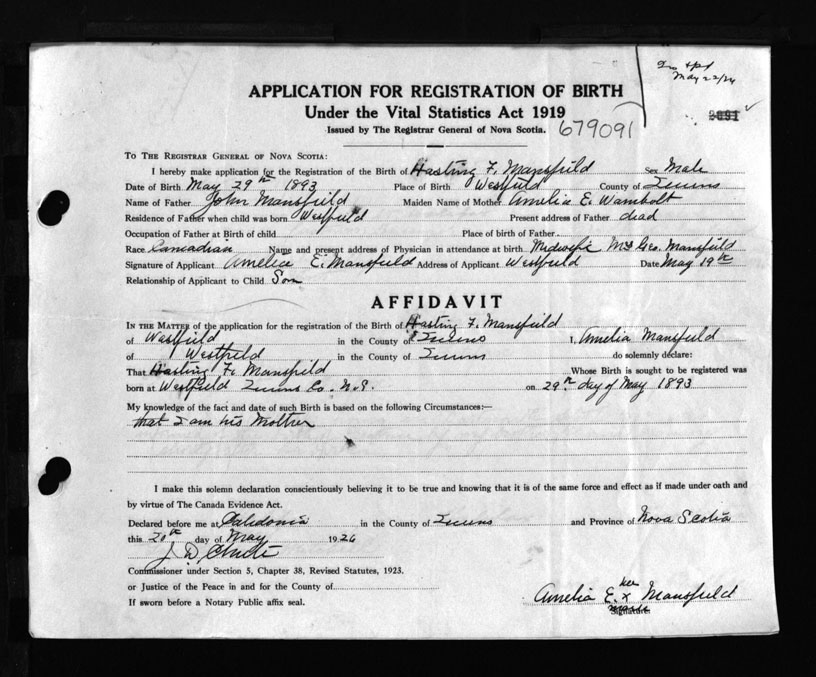 May 22/26
APPLICATION FOR REGISTRATION OF BIRTH
Under the Vital Statistics Act 1919
Issued by The Registrar General of Nova Scotia.
679091
To The Registrar General of Nova Scotia:
I hereby make application for the Registration of the Birth of Hasting F. Mansfield Sex Male
Date of Birth May 29th 1893 Place of Birth Westfield County of Queens
Name of Father John Mansfield Maiden Name of Mother Amelia E. Wambolt
Residence of Father when child was born Westfield Present address of Father dead
Occupation of Father at Birth of child Place of birth of Father
Race Canadian Name and present address of Physician in attendance at birth Midwife Mrs Geo. Mansfield
Signature of Applicant Amelia E. Mansfield Address of Applicant Westfield Date May 19th
Relationship of Applicant to Child Son
AFFIDAVIT
In the Matter of the application for the registration of the Birth of Hasting F. Mansfield
of Westfield in the County of Queens I, Amelia Mansfield
of Westfield in the County of Queens do solemnly declare:
That Hasting F. Mansfield Whose Birth is sought to be registered was
born at Westfield Queens Co. N.S. on 29th day of May 1893
My knowledge of the fact and date of such Birth is based on the following Circumstances:—
that I am his Mother
I make this solemn declaration conscientiously believing it to be true and knowing that it is of the same force and effect as if made under oath and
by virtue of The Canada Evidence Act.
Declared before me at Caledonia in the County of Queens and Province of Nova Scotia
this 20th day of May 1926
Commissioner under Section 5, Chapter 38, Revised Statutes, 1923.
or Justice of the Peace in and for the County of
If sworn before a Notary Public affix seal.
her
Amelia E. x Mansfield
mark
Signature